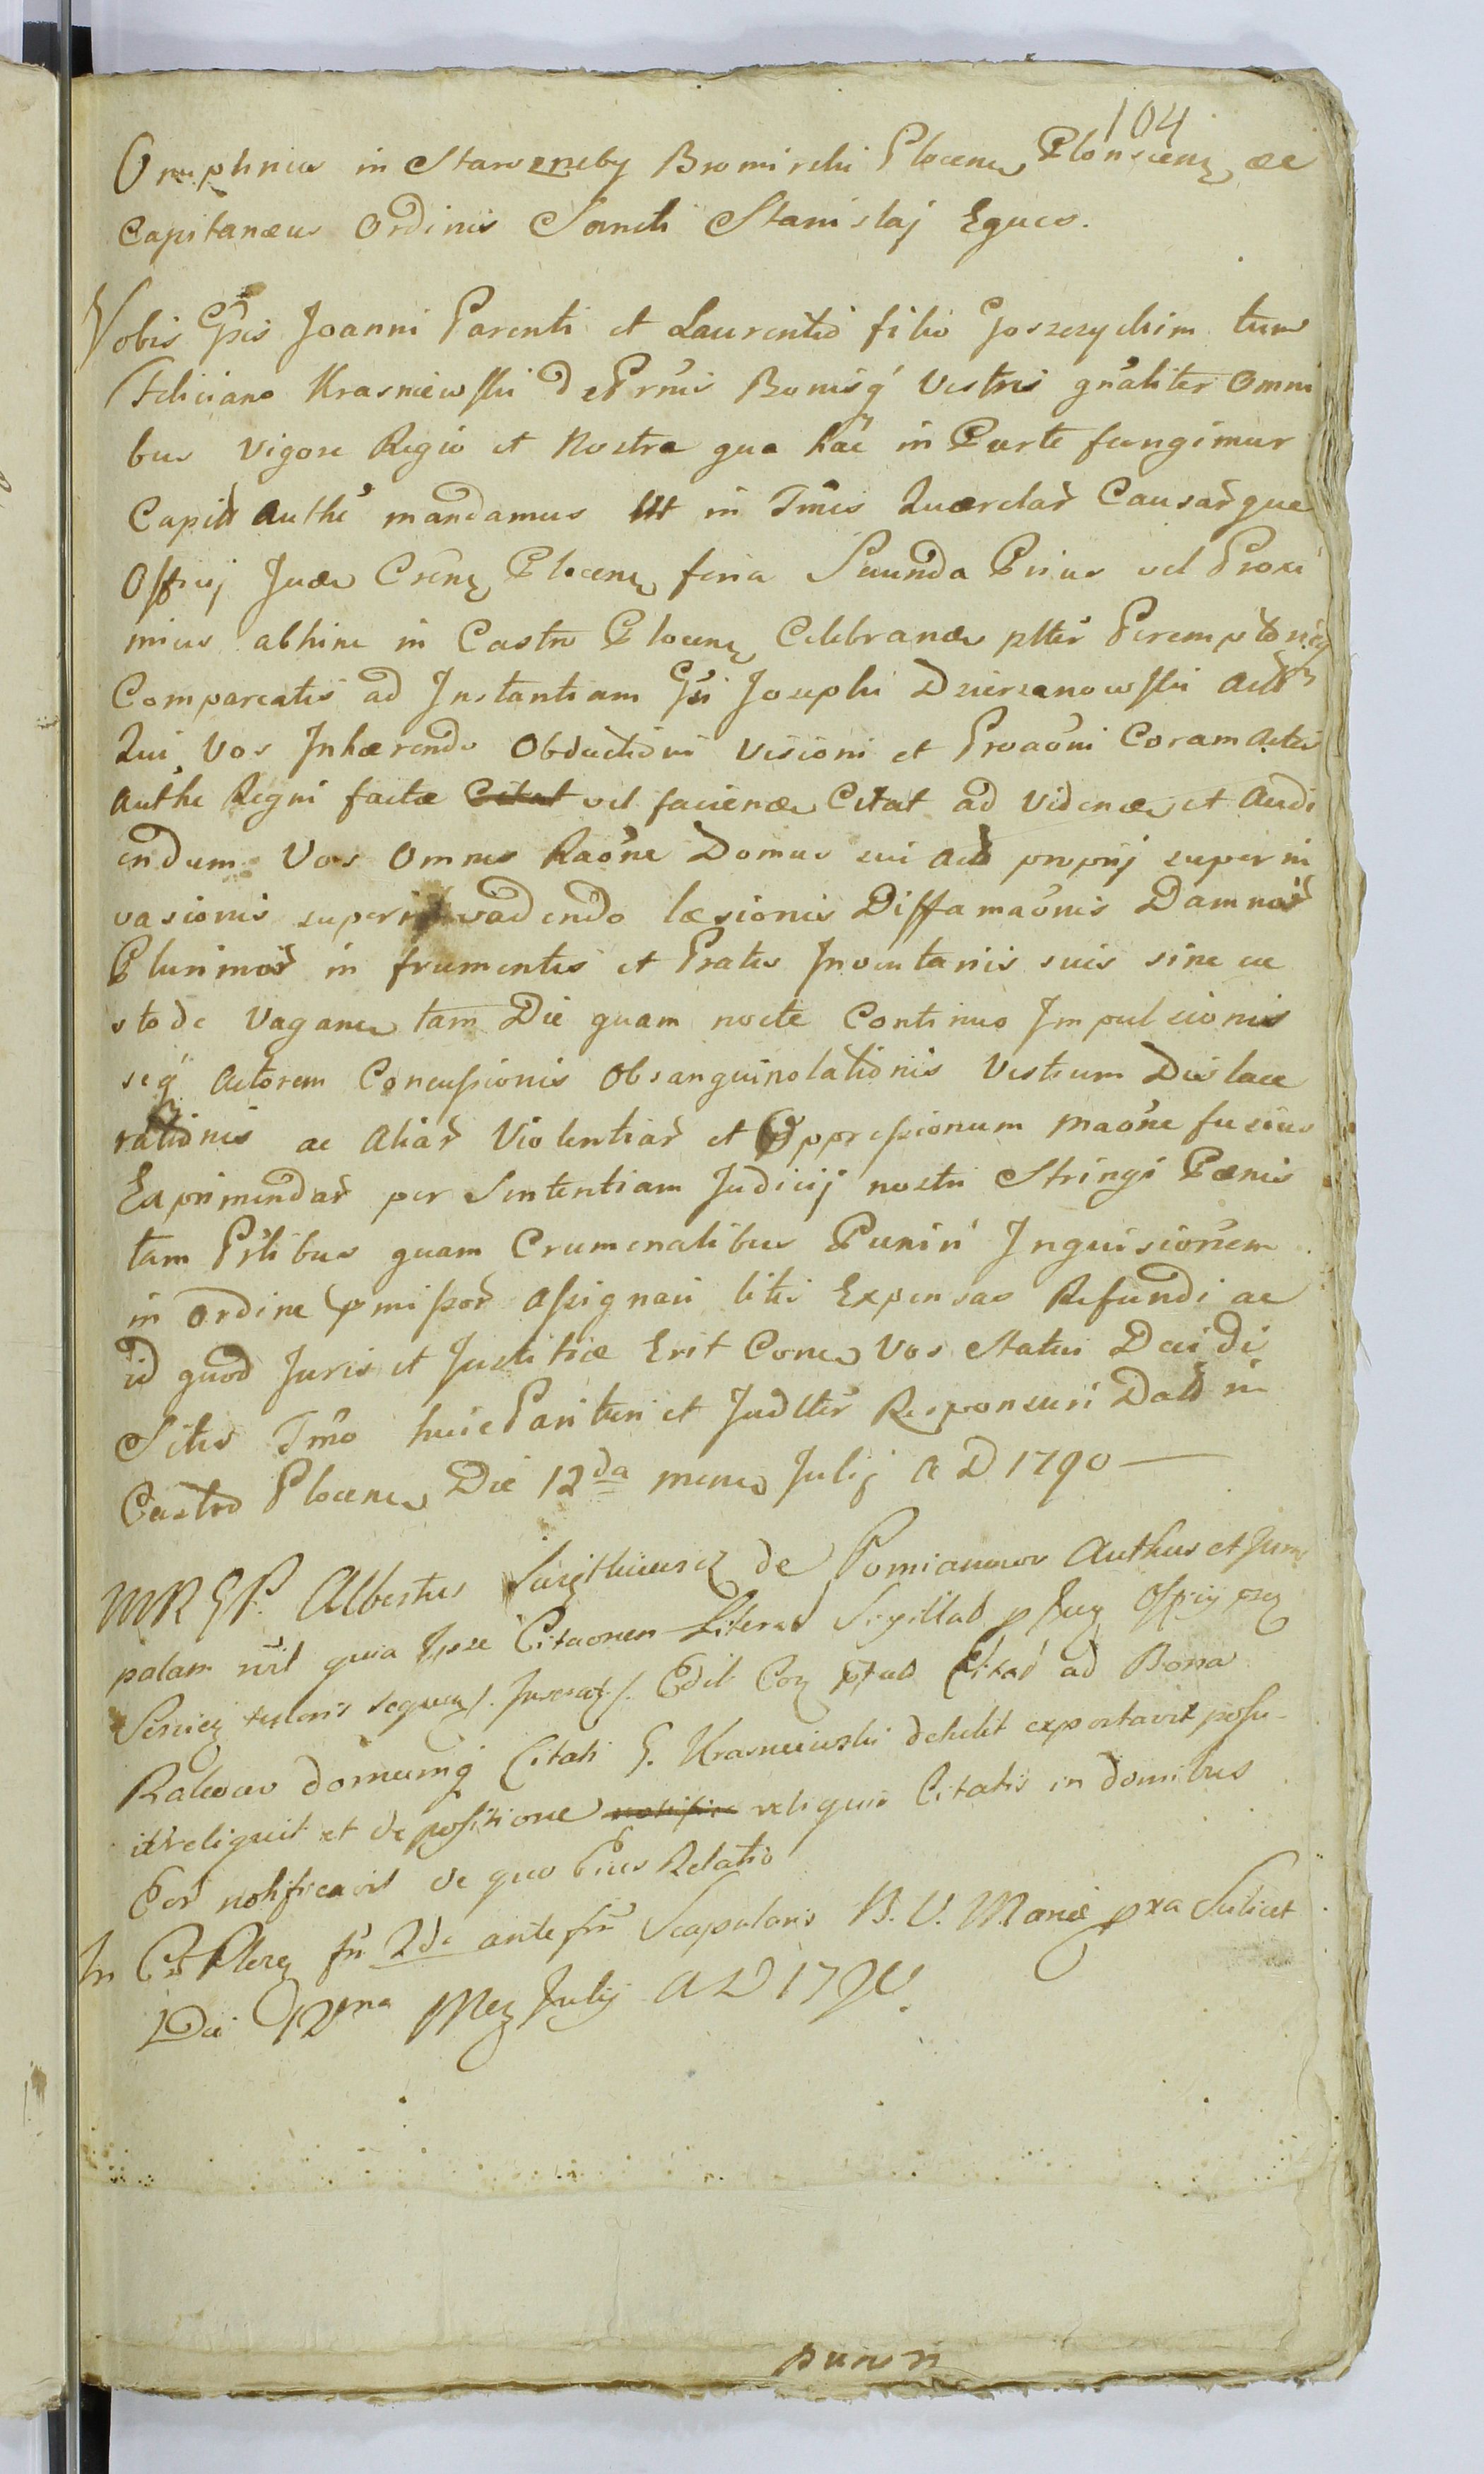 104
Onuphrius in Starozreby Bromirski Plocens Plonscens ac
Capitanæus Ordinis Sancti Stanislaj Eques.
Vobis Gsis Joanni Parenti et Laurentio filio Goszczyckim tum
Feliciano Krasniewski De Prnis Bonisq Vestris gnaliter Omni
bus Vigore Regio et Nostra qua hac in Parte fungimur
Capit Authe mandamus Ut in Tmis Quærelar Causarque
Officij Jud Crens Plocens feria Secunda Prius vel Proxi
mius abhinc in Castro Plocens Celebrand pltter Peremptorie
Compareatis ad Instantiam Gsi Josephi Dzierzanowski Act
Qui Vos Inhærendo Obductioni Visioni et Proaoni Coram Actis
Authe Regni factæ Citat vel faciend Citat ad Videnđ et Audi
endum Vos Omnes Raone Domus sui Act proprij superin
vasionis superinvadendo læsionis Diffamaonis Damnor
Plurimor in frumentis et Pratis Inventariis suis sine cu
stode Vagan tam Die quam nocte Continuo Impulsionis
seq Actorem Concussionis Obsanguinolationis Vestium Dislace
rationis ac Aliar Violentiar et Oppressionum maone fusius
Exprimendar per Sententiam Judicij nostri Stringi Pænis
tam Prlibus quam Crumenalibus Puniri Inquisionem
in Ordine pmissor Assignari litis Expensas Refundi ac
id quod Juris et Justitiæ Erit Conc Vos Statui Decidi
Sitis Tmo huic Parituri et Judltter Responsuri Dat in
Castro Plocens Die 12da mens Julij A D 1790
MRGP. Albertus de Pomianowo Authus et Jur
palam rlt quia Ipse Citaonem Literas Sigillat p Jux Officij
tenoris sequen /. Inserat /. Edit Cor Citat ad Bona
domumq Citati G. Krasniewski detulit exportavit posu-
it reliquit et de positione notific reliquis Citatis in domibus
Eor notificavit de quo Ejus Relatio
In C Plocz fr 2da ante fm Scapularis B. V. Mariæ pxa Scilicet
Die 12ma Mez Julij A D 1790